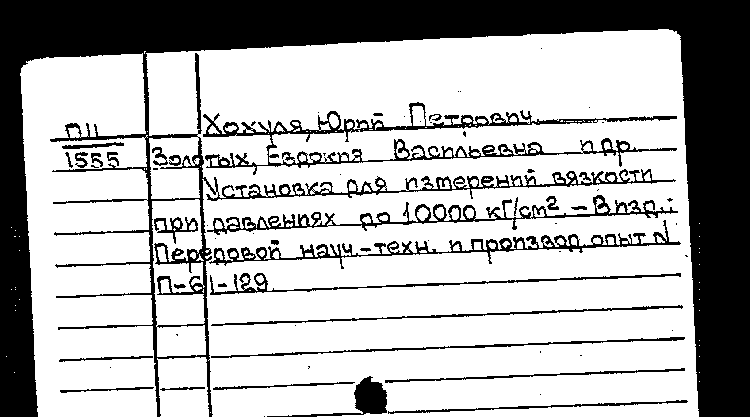 Хохуля, Юрий Петрович.
ПII
1555 Золотых, Евдокия Васильевна и др.
Установка для измерений вязкости
при давлениях до 10000 кГ/см² – В изд.:
Передовой науч.-техн. и производ. опыт N
П-61-129